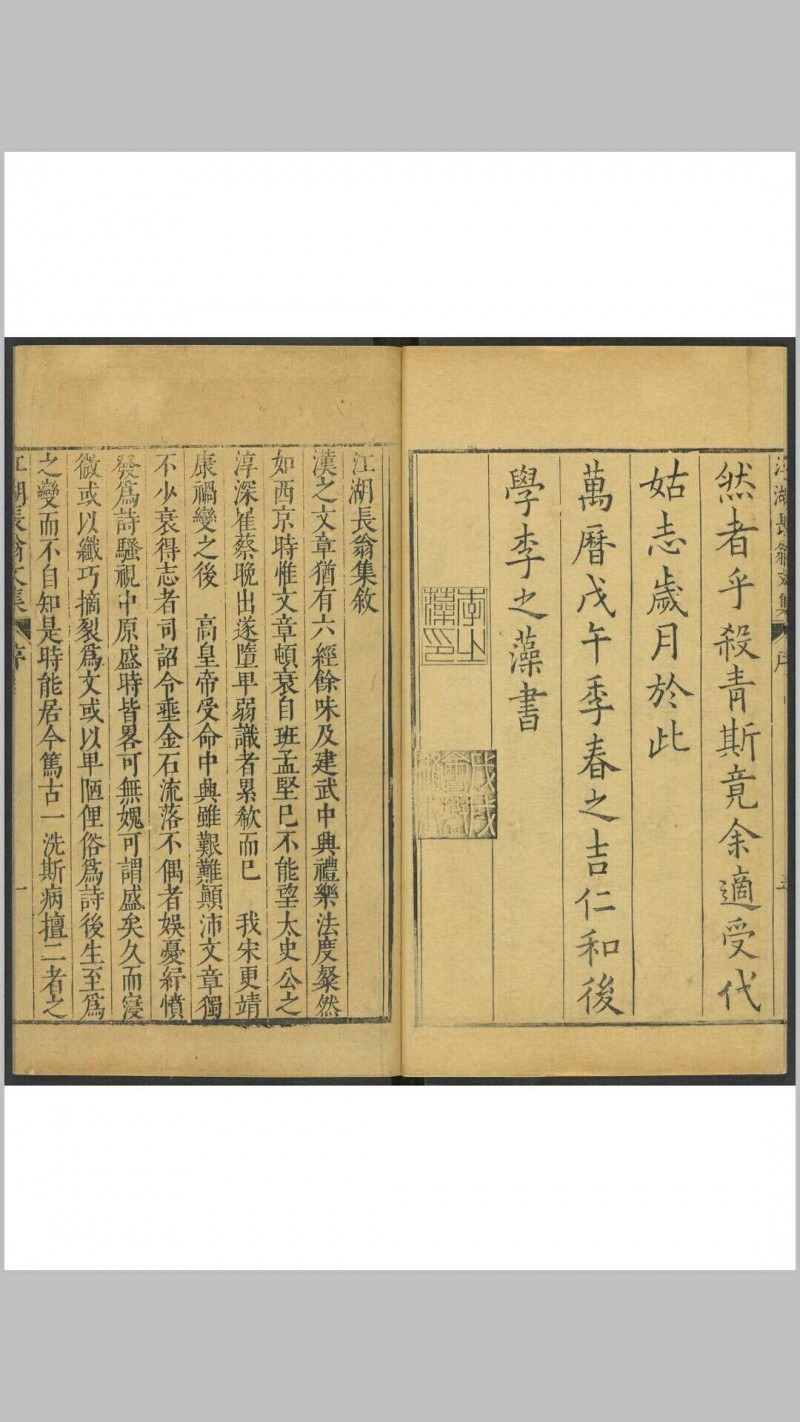 江湖長翁文集
序
然者乎殺青斯竟余適受代
姑志歲月於此
萬曆戊午季春之吉仁和後
學李之藻書
李之藻印
江湖長翁集敘
漢之文章猶有六經餘味及建武中興禮樂法度粲然
如西京時惟文章頓衰自班孟堅已不能望太史公之
淳深崔蔡晚出遂墮卑弱識者累欷而已 我宋更靖
康禍變之後 高皇帝受命中興雖艱難顛沛文章獨
不少衰得志者司詔令垂金石流落不偶者娛憂紓憤
發為詩騷視中原盛時皆畧可無媿可謂盛矣久而寖
微或以纖巧摘裂爲文或以卑陋俚俗爲詩後生至爲
之變而不自知是時能居今篤古一洗斯病擅二者之
江湖長翁文集
序
一